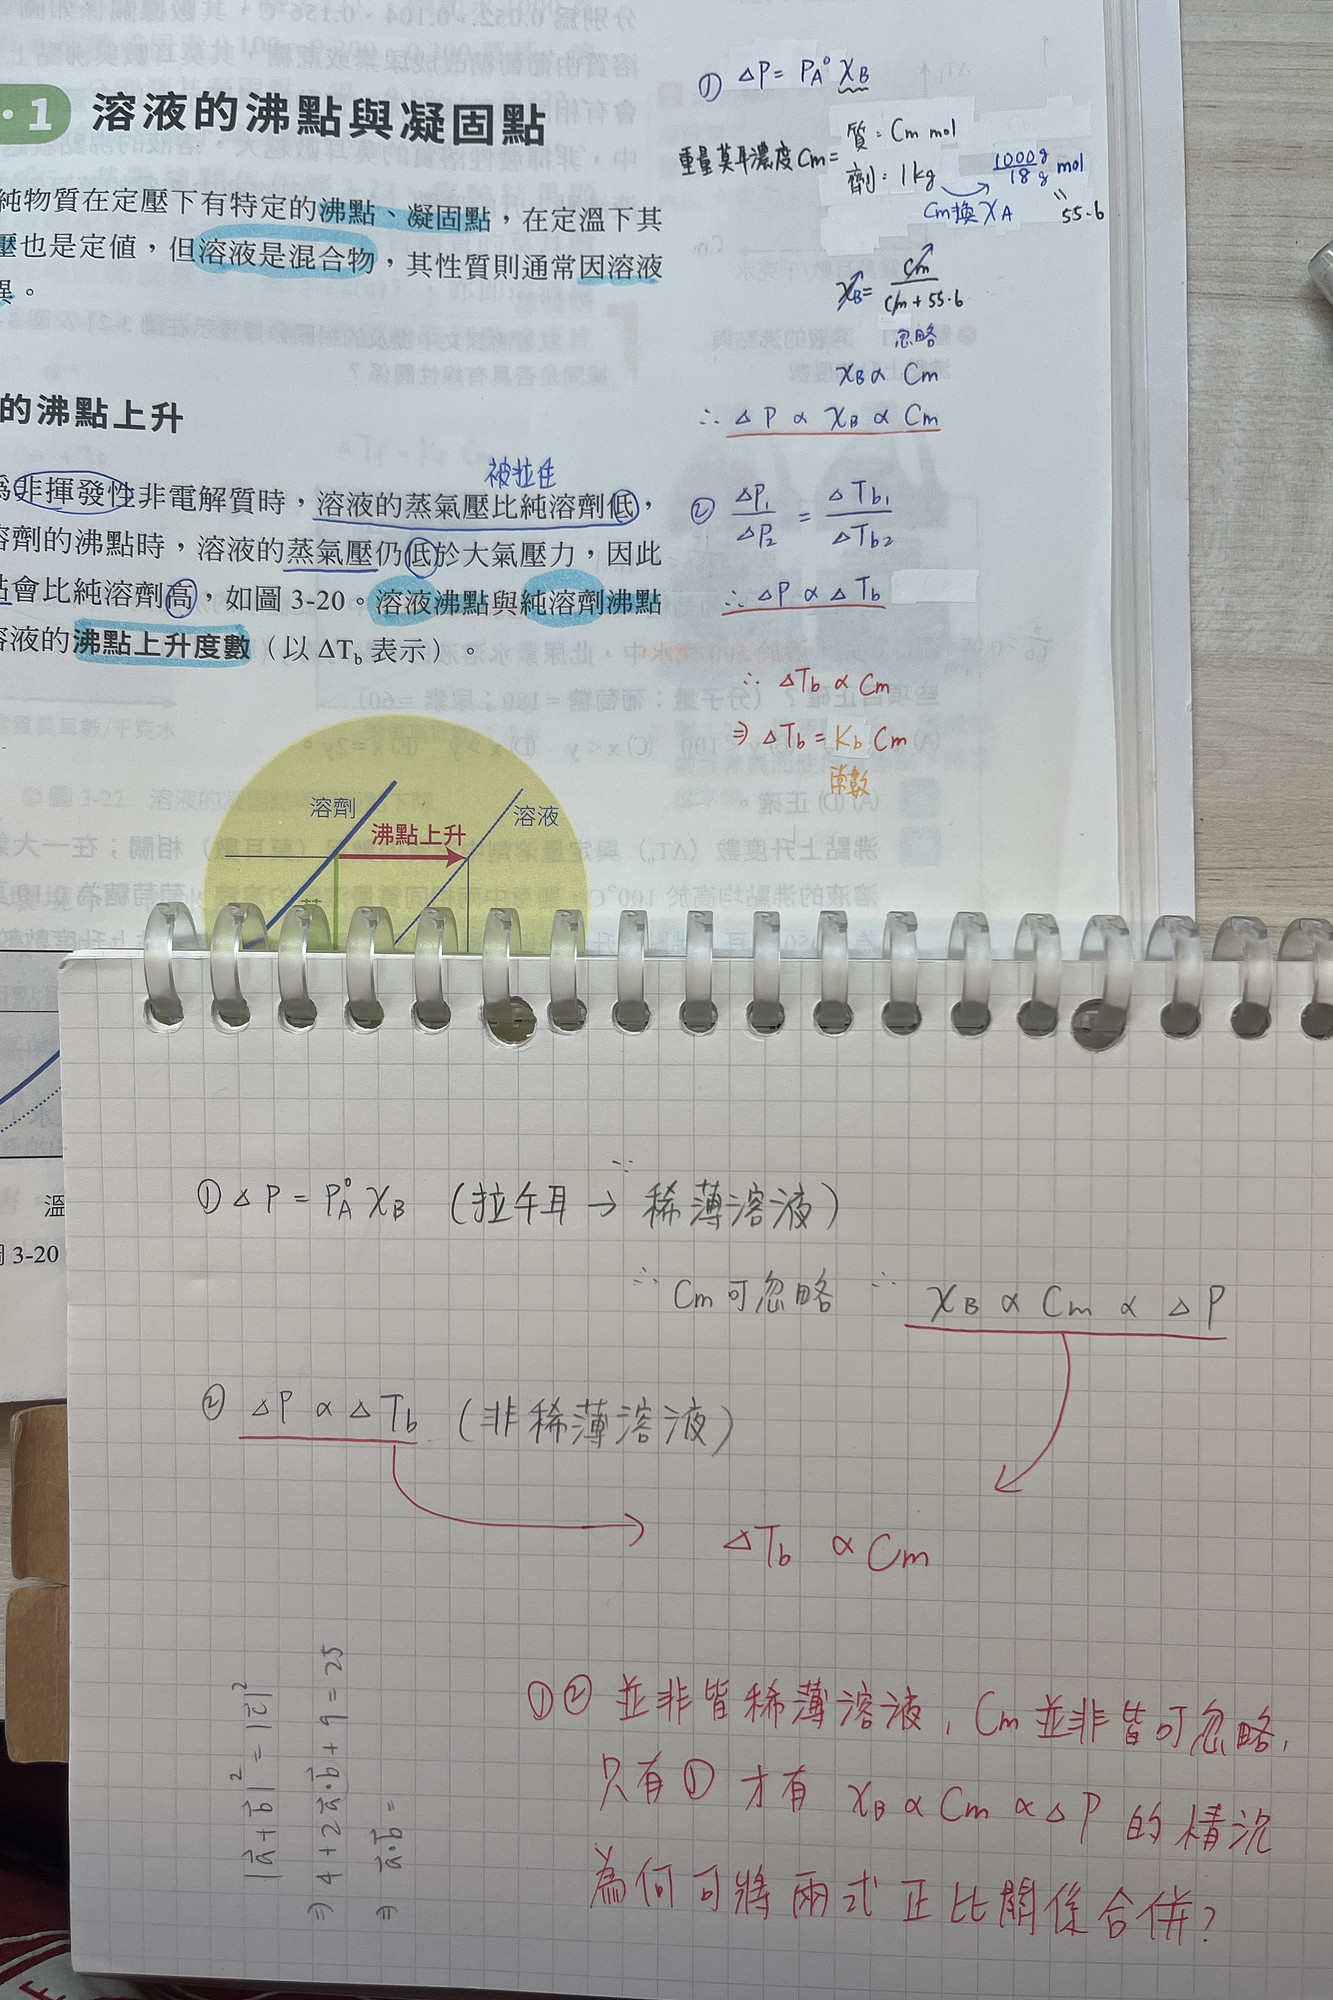 ·1 溶液的沸點與凝固點
純物質在定壓下有特定的沸點、凝固點，在定溫下其
壓也是定值，但溶液是混合物，其性質則通常因溶液
異。
的沸點上升
被拉住
為非揮發性非電解質時，溶液的蒸氣壓比純溶劑低，
溶劑的沸點時，溶液的蒸氣壓仍低於大氣壓力，因此
點會比純溶劑高，如圖 3-20。溶液沸點與純溶劑沸點
溶液的沸點上升度數（以 ΔTb 表示）。
溶劑
沸點上升
溶液
溫
圖 3-20
① ΔP = PA° XB
重量莫耳濃度 Cm = 質：Cm mol
劑：1kg
1000g/18g mol
Cm換XA
=55.6
XB = Cm/(Cm+55.6)
忽略
XB ∝ Cm
∴ ΔP ∝ XB ∝ Cm
② ΔP1/ΔP2 = ΔTb1/ΔTb2
∴ ΔP ∝ ΔTb
∴ ΔTb ∝ Cm
⇒ ΔTb = Kb Cm
常數
① ΔP = PA° XB (拉午耳 → ∵ 稀薄溶液)
∴ Cm可忽略 ∴ XB ∝ Cm ∝ ΔP
② ΔP ∝ ΔTb (非稀薄溶液)
ΔTb ∝ Cm
①② 並非皆稀薄溶液，Cm並非皆可忽略，
只有① 才有 XB ∝ Cm ∝ ΔP 的情況
為何可將兩式正比關係合併？
|a⃗+b⃗|² = |c⃗|²
⇒ 4+2a⃗·b⃗+9=25
⇒ a⃗·b⃗ =